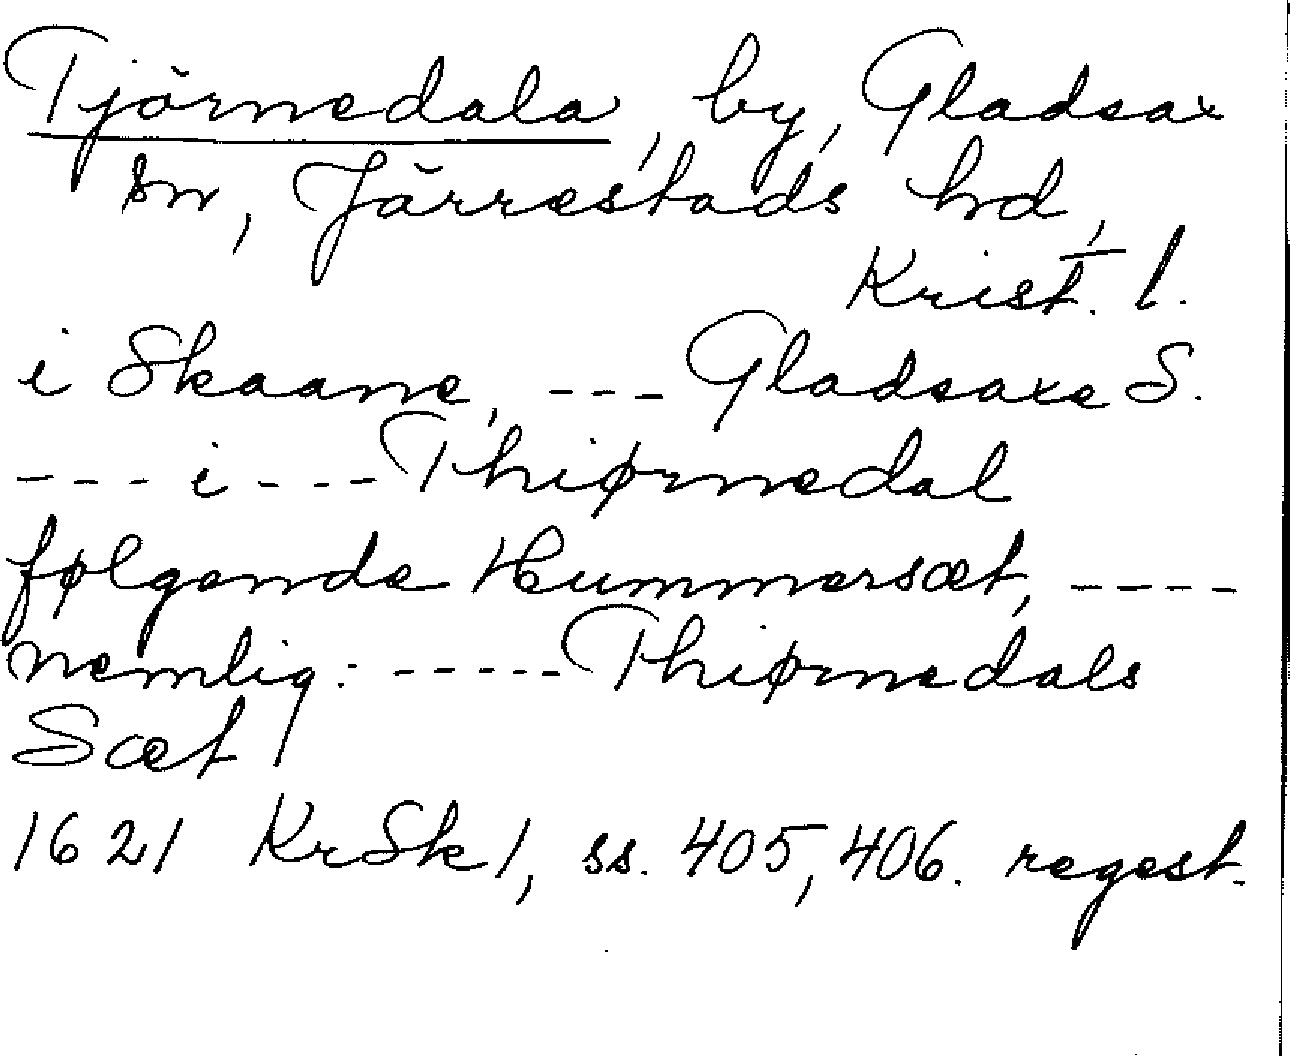 Tjörnedala, by, Gladsax
sn, Järrestads hd,
Krist. l.
i Skaane, --- Gladsaxe S.
--- i --- Thiørnedal
følgende Hummersæt, ----
nemlig: ----- Thiørnedals
Sæt
1621 KrSk 1, ss. 405, 406. regest.